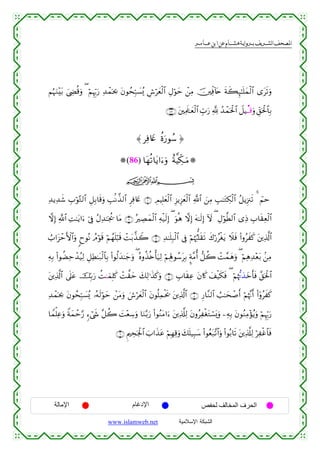 المصحف الشريف برواية هشام عن ابن عامر
وَتَرَى ٱلْمَلَٰٓئِكَةَ حَآفِّينَ مِنْ حَوْلِ ٱلْعَرْشِ يُسَبِّحُونَ بِحَمْدِ رَبِّهِمْ ۖ وَقُضِىَ بَيْنَهُم
بِٱلْحَقِّ وَقِيلَ ٱلْحَمْدُ لِلَّهِ رَبِّ ٱلْعَٰلَمِينَ
﴿ سُورَةُ غَافِرٍ ﴾
* مَكِّيَّةٌ وَءَايَاتُهَا (86) *
بسم الله الرحمن الرحيم
حمٓ ۚ تَنزِيلُ ٱلْكِتَٰبِ مِنَ ٱللَّهِ ٱلْعَزِيزِ ٱلْعَلِيمِ غَافِرِ ٱلذَّنۢبِ وَقَابِلِ ٱلتَّوْبِ شَدِيدِ
ٱلْعِقَابِ ذِى ٱلطَّوْلِ ۖ لَآ إِلَٰهَ إِلَّا هُوَ ۖ إِلَيْهِ ٱلْمَصِيرُ مَا يُجَٰدِلُ فِىٓ ءَايَٰتِ ٱللَّهِ إِلَّا
ٱلَّذِينَ كَفَرُوا۟ فَلَا يَغْرُرْكَ تَقَلُّبُهُمْ فِى ٱلْبِلَٰدِ كَذَّبَتْ قَبْلَهُمْ قَوْمُ نُوحٍ وَٱلْأَحْزَابُ
مِنۢ بَعْدِهِمْ ۖ وَهَمَّتْ كُلُّ أُمَّةٍۭ بِرَسُولِهِمْ لِيَأْخُذُوهُ ۖ وَجَٰدَلُوا۟ بِٱلْبَٰطِلِ لِيُدْحِضُوا۟ بِهِ
ٱلْحَقَّ فَأَخَذتُّهُمْ ۖ فَكَيْفَ كَانَ عِقَابِ وَكَذَٰلِكَ حَقَّتْ كَلِمَٰتُ رَبِّكَ عَلَى ٱلَّذِينَ
كَفَرُوٓا۟ أَنَّهُمْ أَصْحَٰبُ ٱلنَّارِ ٱلَّذِينَ يَحْمِلُونَ ٱلْعَرْشَ وَمَنْ حَوْلَهُۥ يُسَبِّحُونَ بِحَمْدِ
رَبِّهِمْ وَيُؤْمِنُونَ بِهِۦ وَيَسْتَغْفِرُونَ لِلَّذِينَ ءَامَنُوا۟ رَبَّنَا وَسِعْتَ كُلَّ شَىْءٍ رَّحْمَةً وَعِلْمًا
فَٱغْفِرْ لِلَّذِينَ تَابُوا۟ وَٱتَّبَعُوا۟ سَبِيلَكَ وَقِهِمْ عَذَابَ ٱلْجَحِيمِ
الحرف المخالف لحفص الإدغام الإمالة
الشبكة الإسلامية www.islamweb.net